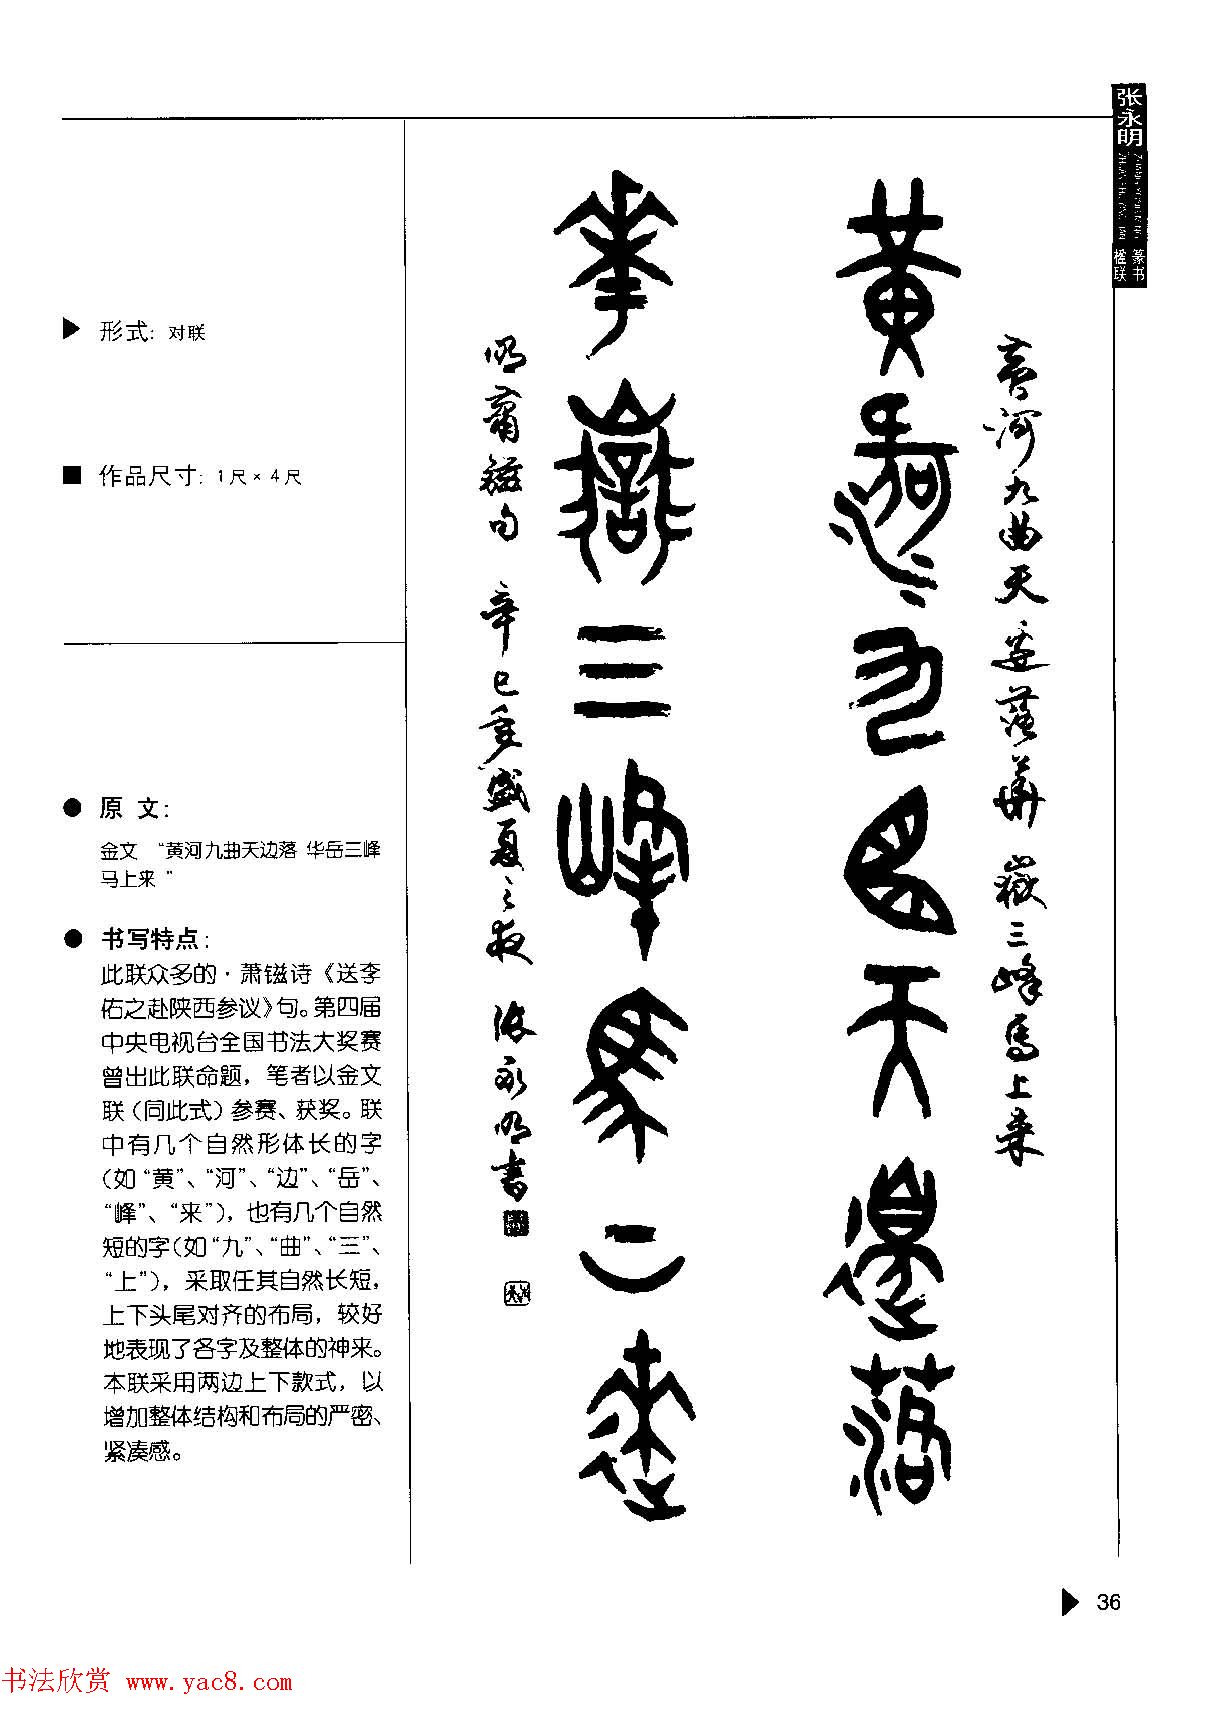 张永明
篆书
楹联
▶ 形式: 对联
■ 作品尺寸: 1尺×4尺
● 原 文:
金文 “黄河九曲天边落 华岳三峰
马上来 ”
● 书写特点:
此联众多的·萧镃诗《送李
佑之赴陕西参议》句。第四届
中央电视台全国书法大奖赛
曾出此联命题，笔者以金文
联（同此式）参赛、获奖。联
中有几个自然形体长的字
(如“黄”、“河”、“边”、“岳”、
“峰”、“来”)，也有几个自然
短的字(如“九”、“曲”、“三”、
“上”)，采取任其自然长短，
上下头尾对齐的布局，较好
地表现了各字及整体的神来。
本联采用两边上下款式，以
增加整体结构和布局的严密、
紧凑感。
黄河九曲天边落华嶽三峰马上来
黄河九曲天邊落
華嶽三峰馬上來
明萧镃句 辛巳年盛夏之夜 张永明书
▶ 36
书法欣赏 www.yac8.com